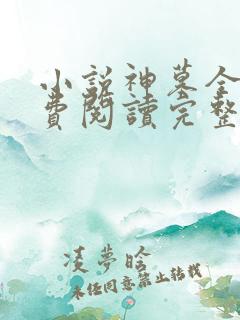 小説神墓全
費閱讀完整
凌夢晗
未經同意禁止轉載